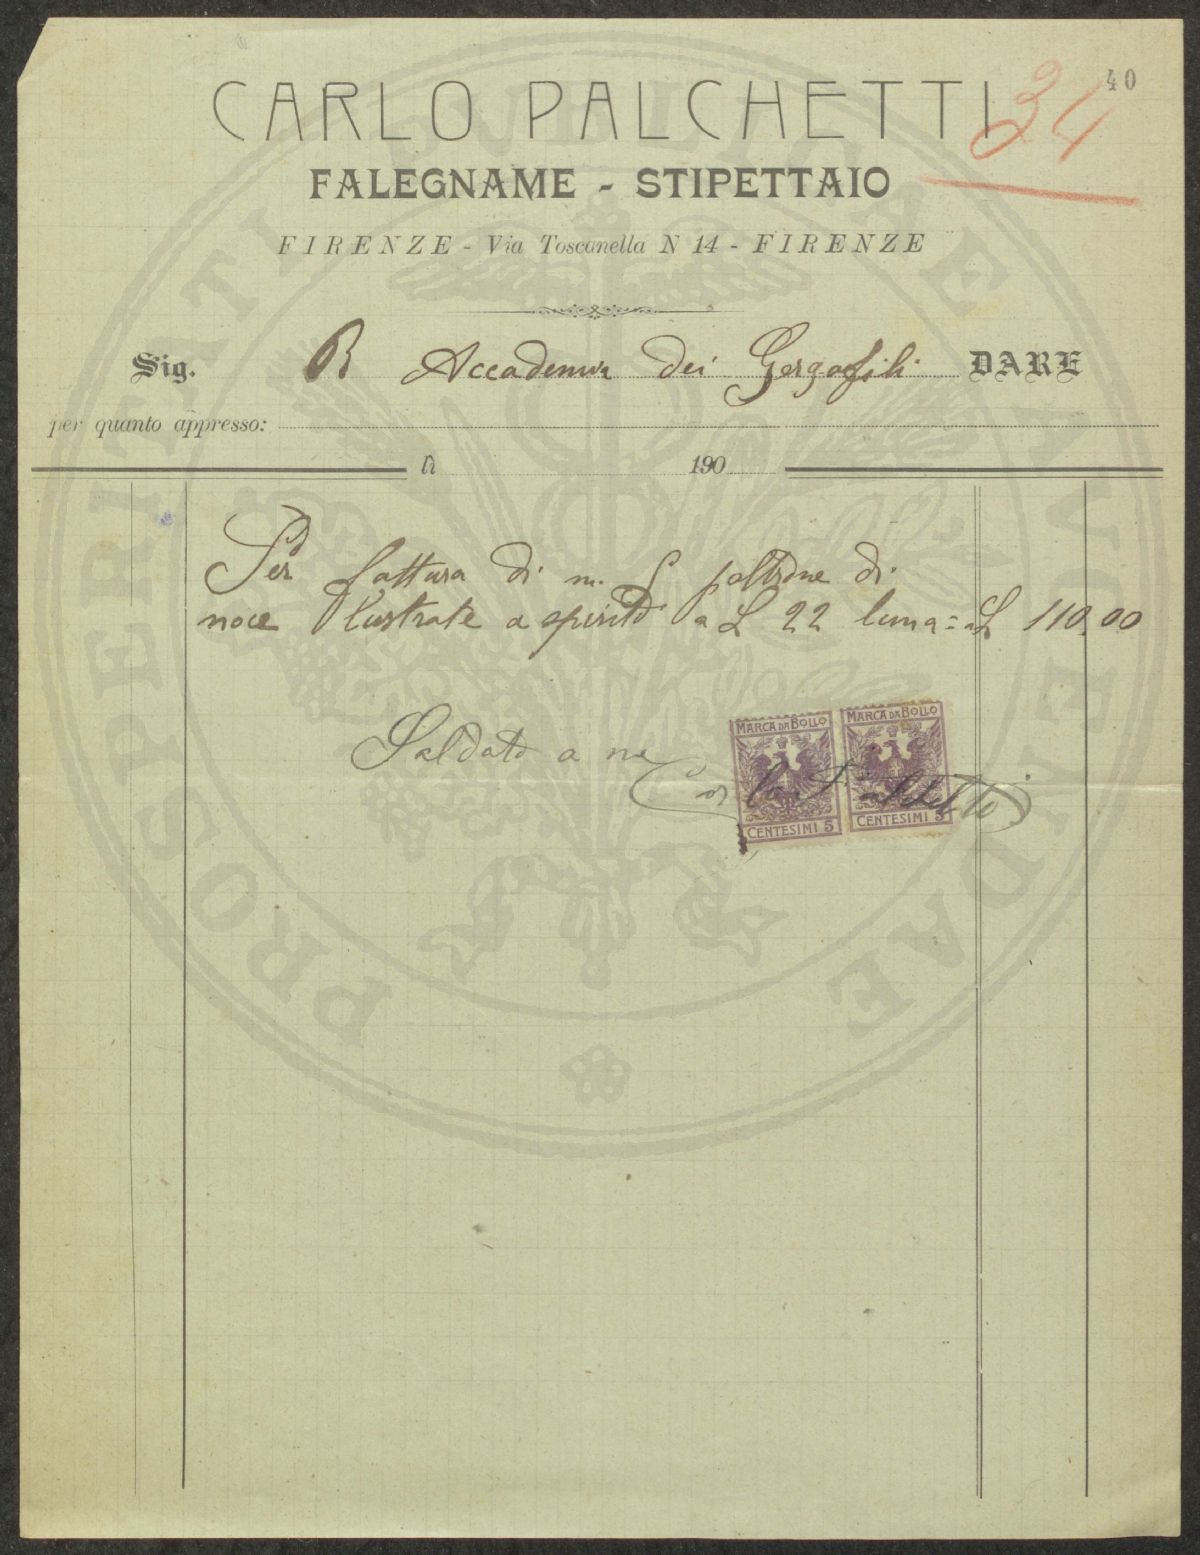 CARLO PALCHETTI
34
40
FALEGNAME - STIPETTAIO
FIRENZE - Via Toscanella N 14 - FIRENZE
Sig. R Accademia dei Gergofili DARE
per quanto appresso:
lì 190
Per fattura di n. 5 poltrone di
noce lustrate a spirito a L 22 luna = L 110,00
Saldato a me
Carlo Palchetti
MARCA DA BOLLO MARCA DA BOLLO
CENTESIMI 5 CENTESIMI 5
PROSPERITATI PUBLICAE AVGENDAE